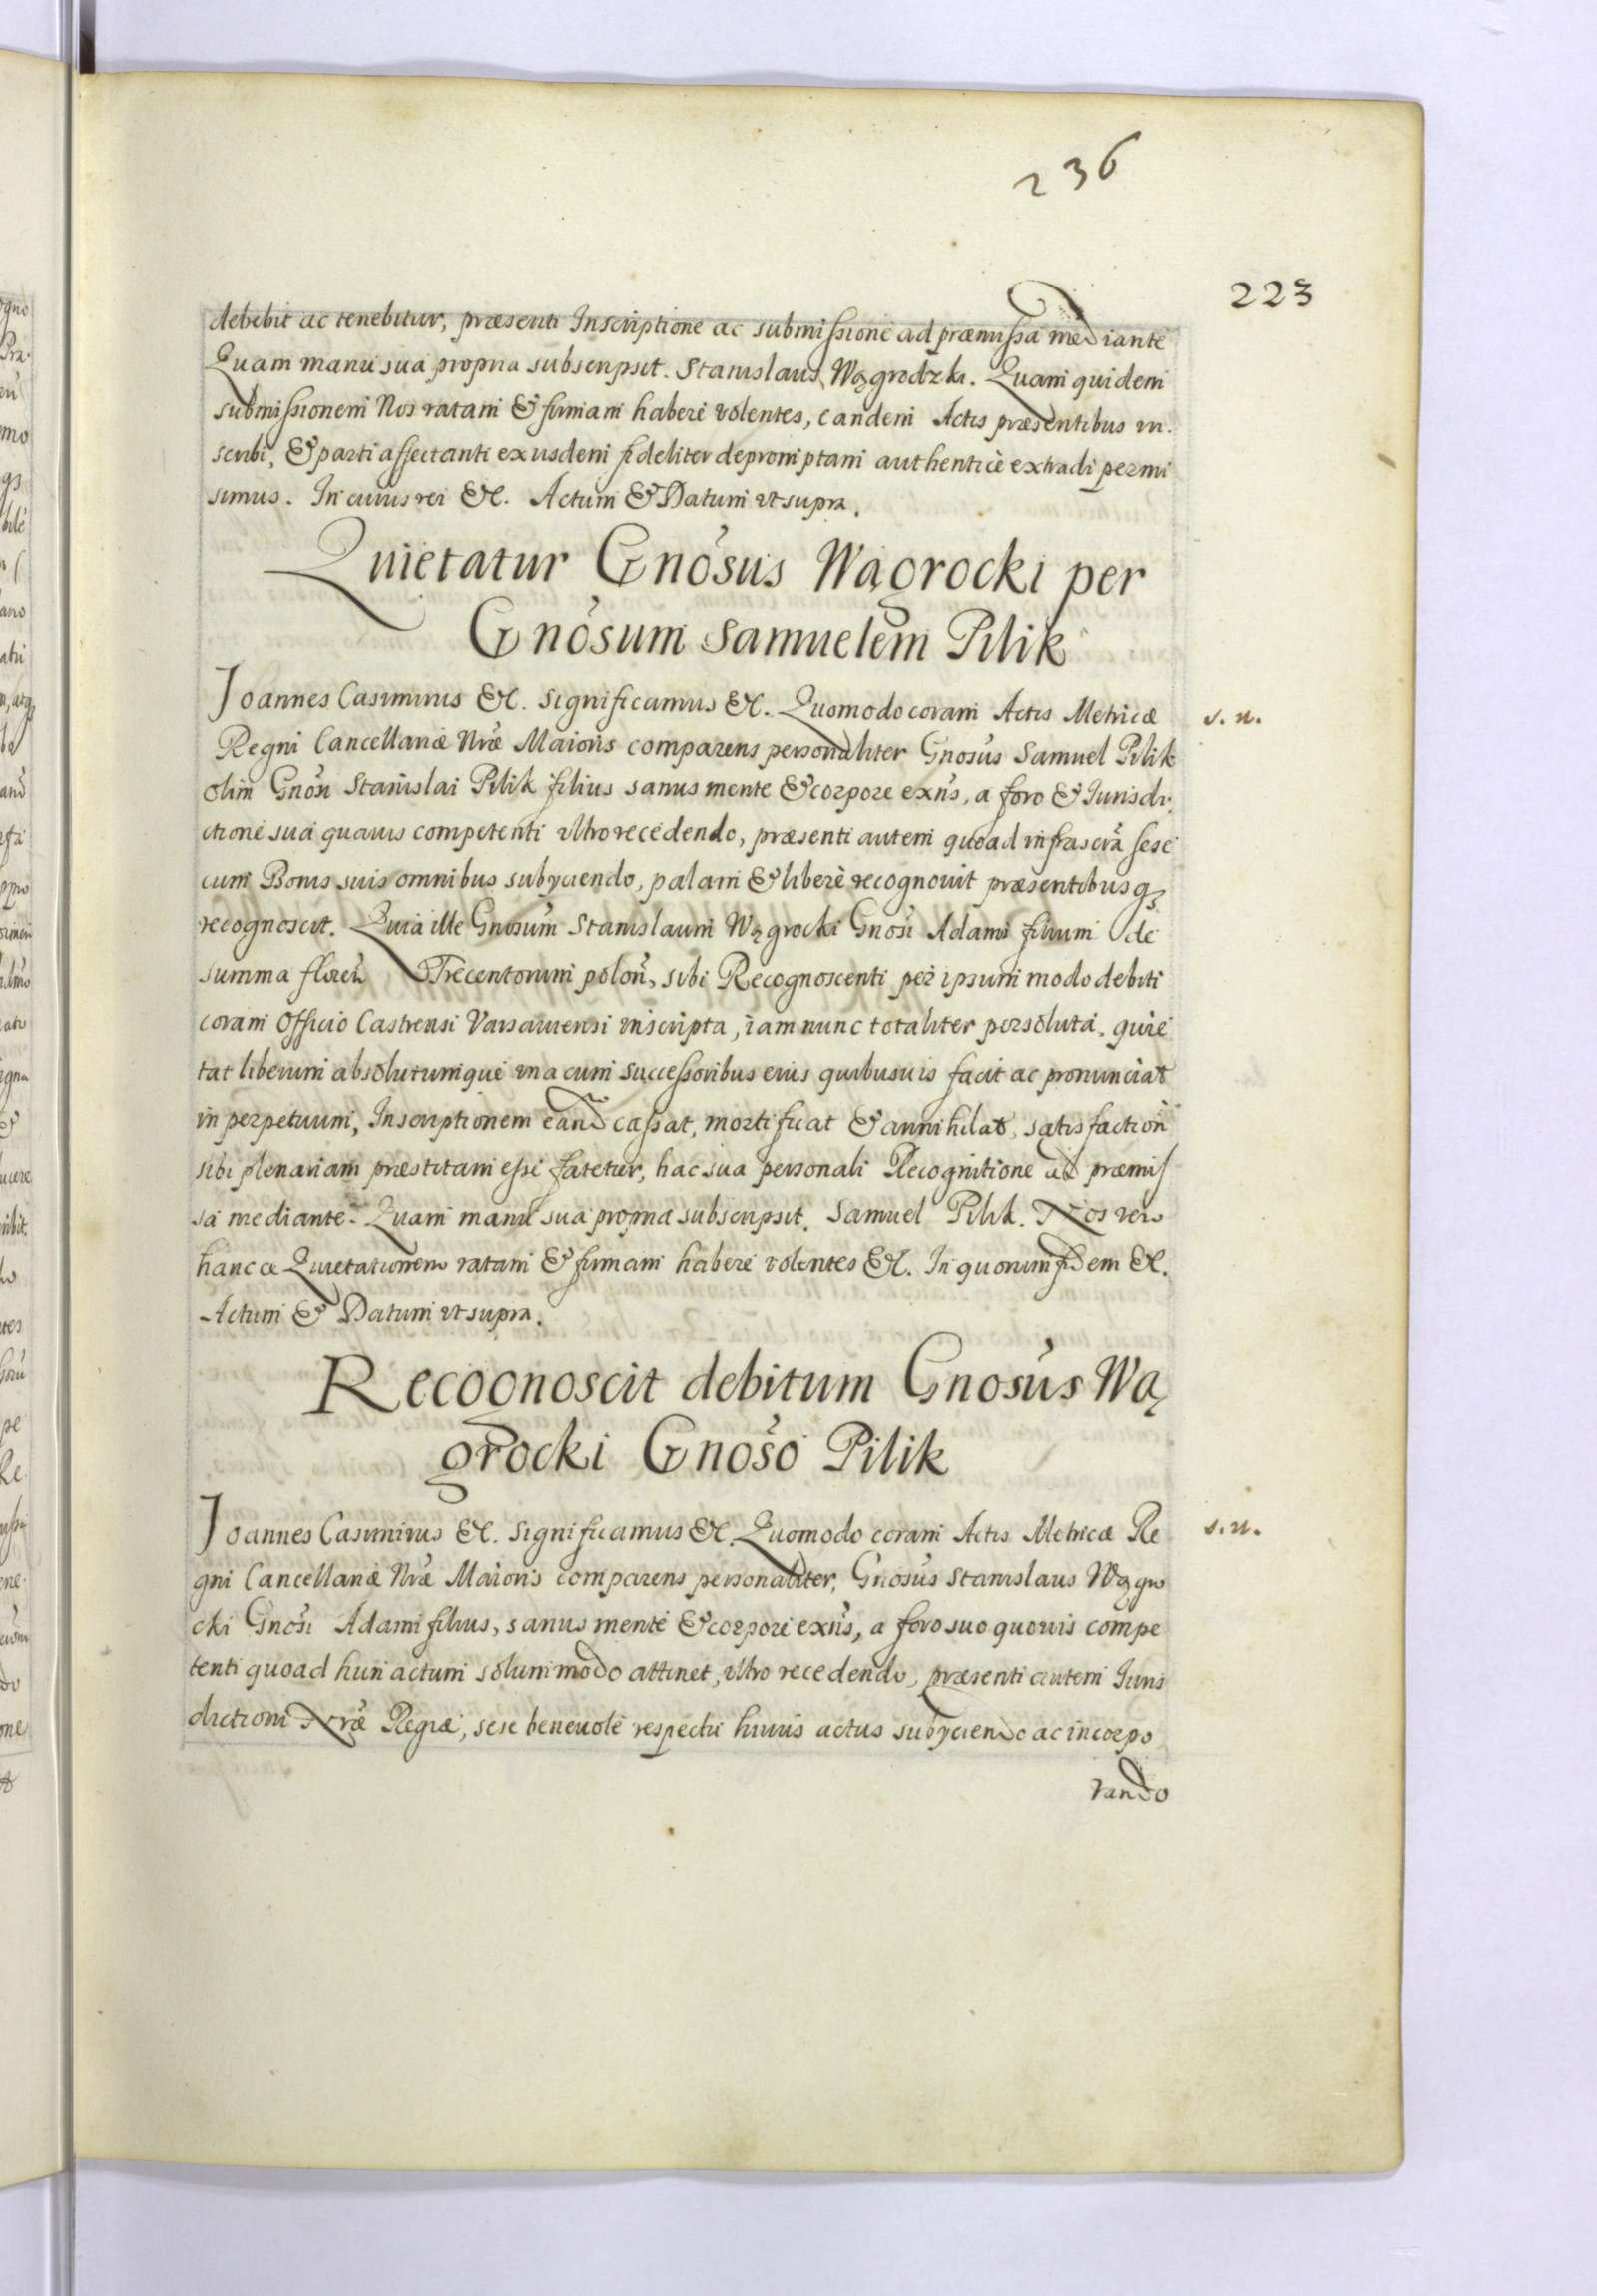 236
223
debebit ac tenebitur, præsenti Inscriptione ac submissione ad præmissa mediante
Quam manu sua propria subscripsit. Stanislaus Wągrodzki. Quam quidem
submissionem Nos ratam & firmam habere volentes, eandem Actis præsentibus in-
scribi, & parti affectanti exijsdem fideliter depromptam authenticè extradi permi
simus. In cuius rei &c. Actum & Datum vt supra.
Quietatur Gnosus Wągrocki per
Gnosum Samuelem Pilik
Joannes Casimirus &c. Significamus &c. Quomodo coram Actis Metricæ
s. n.
Regni Cancellariæ Nræ Maioris comparens personaliter Gnosus Samuel Pilik
olim Gnosi Stanislai Pilik filius sanus mente & corpore exns, a foro & Jurisdi-
ctione sua quauis competenti vltro recedendo, præsenti autem quoad infrascra sese
cum Bonis suis omnibus subyciendo, palam & liberè recognouit præsentibusq3
recognoscit. Quia ille Gnosum Stanislaum Wągrocki Gnosi Adami filium de
summa floren Trecentorum polon, sibi Recognoscenti per ipsum modo debiti
coram Officio Castrensi Varsauiensi inscripta, iam nunc totaliter persoluta, quie
tat liberum absolutumque vna cum Successoribus eius quibusuis facit ac pronunciat
in perpetuum, Inscriptionem eand cassat, mortificat & annihilat, satisfaction
sibi plenariam præstitam esse fatetur, hac sua personali Recognitione ad præmis
sa mediante. Quam manu sua propria subscripsit. Samuel Pilik. Nos vero
hancce Quietationem ratam & firmam habere volentes &c. In quorum fidem &c.
Actum & Datum vt supra.
Recognoscit debitum Gnosus Wą
grocki Gnoso Pilik
Joannes Casimirus &c. Significamus &c. Quomodo coram Actis Metricæ Re
s. n.
gni Cancellariæ Nræ Maioris comparens personaliter, Gnosus Stanislaus Wągro
cki Gnosi Adami filius, sanus mente & corpore exns, a foro suo quouis compe
tenti quoad hun actum solummodo attinet, vltro recedendo, præsenti autem Juris
dictioni Nræ Regiæ, sese beneuolè respectu huius actus subyciendo ac incorpo
rando